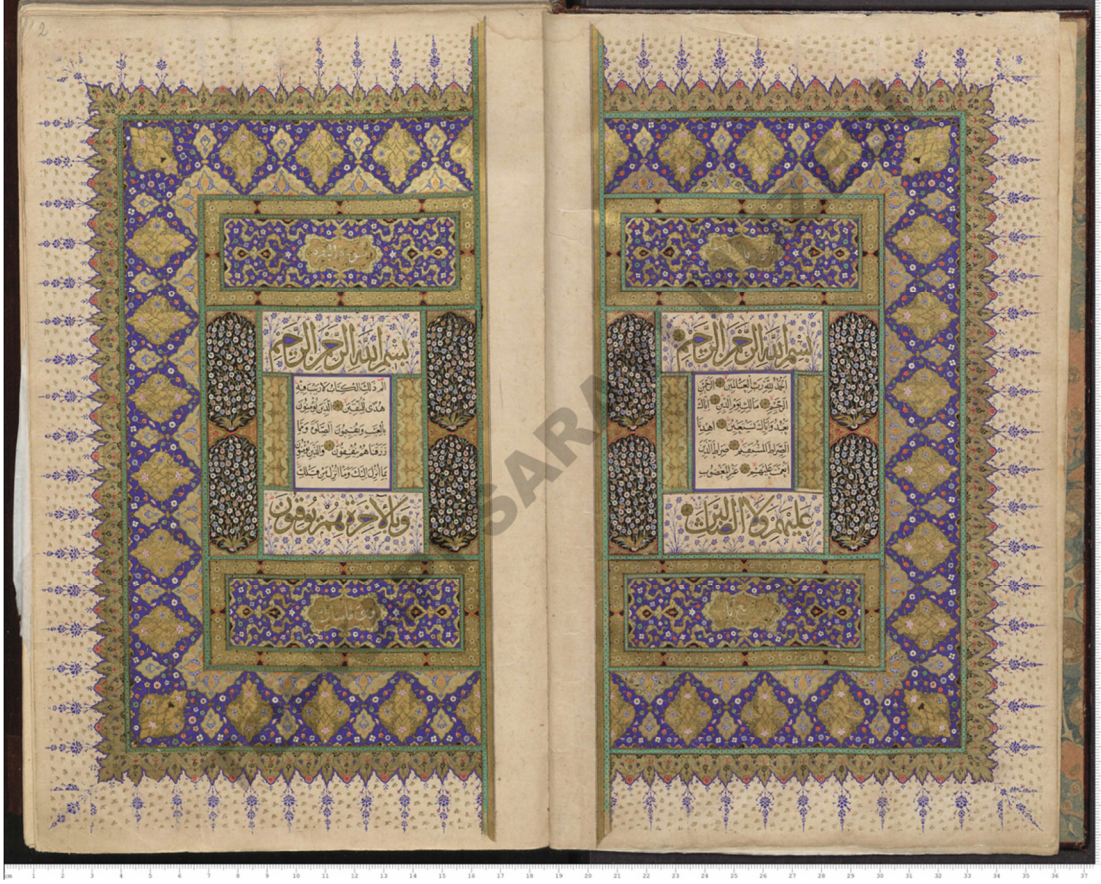 2
بسم الله الرحمن الرحيم
الحمد لله رب العالمين الرحمن
الرحيم مالك يوم الدين اياك
نعبد واياك نستعين اهدنا
الصراط المستقيم صراط الذين
انعمت عليهم غير المغضوب
عليهم ولا الضالين
بسم الله الرحمن الرحيم
الم ذلك الكتاب لا ريب فيه
هدى للمتقين الذين يؤمنون
بالغيب ويقيمون الصلوة ومما
رزقناهم ينفقون والذين يؤمنون
بما انزل اليك وما انزل من قبلك
وبالآخرة هم يوقنون
cm 1 2 3 4 5 6 7 8 9 10 11 12 13 14 15 16 17 18 19 20 21 22 23 24 25 26 27 28 29 30 31 32 33 34 35 36 37